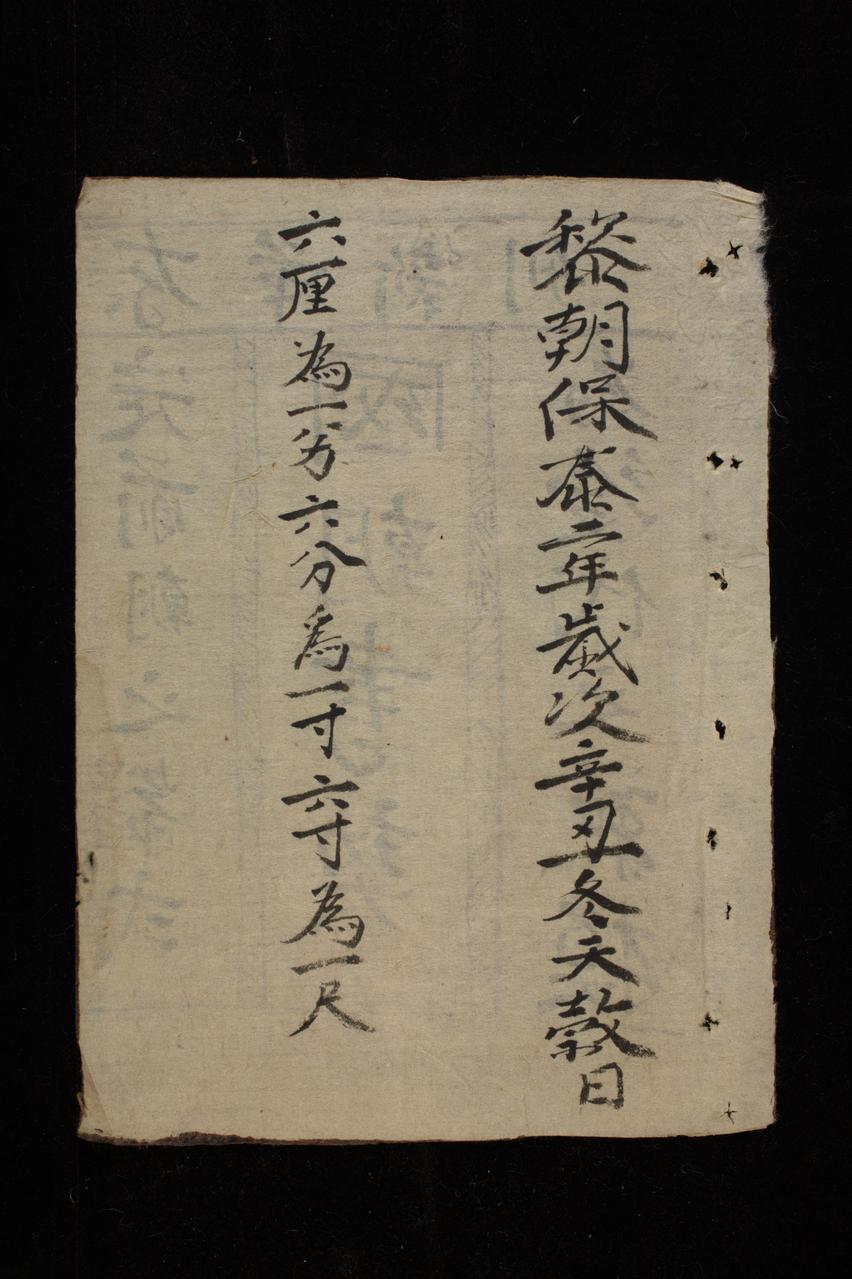 黎朝保泰二年歲次辛丑冬天穀日
六厘為一分六分為一寸六寸為一尺